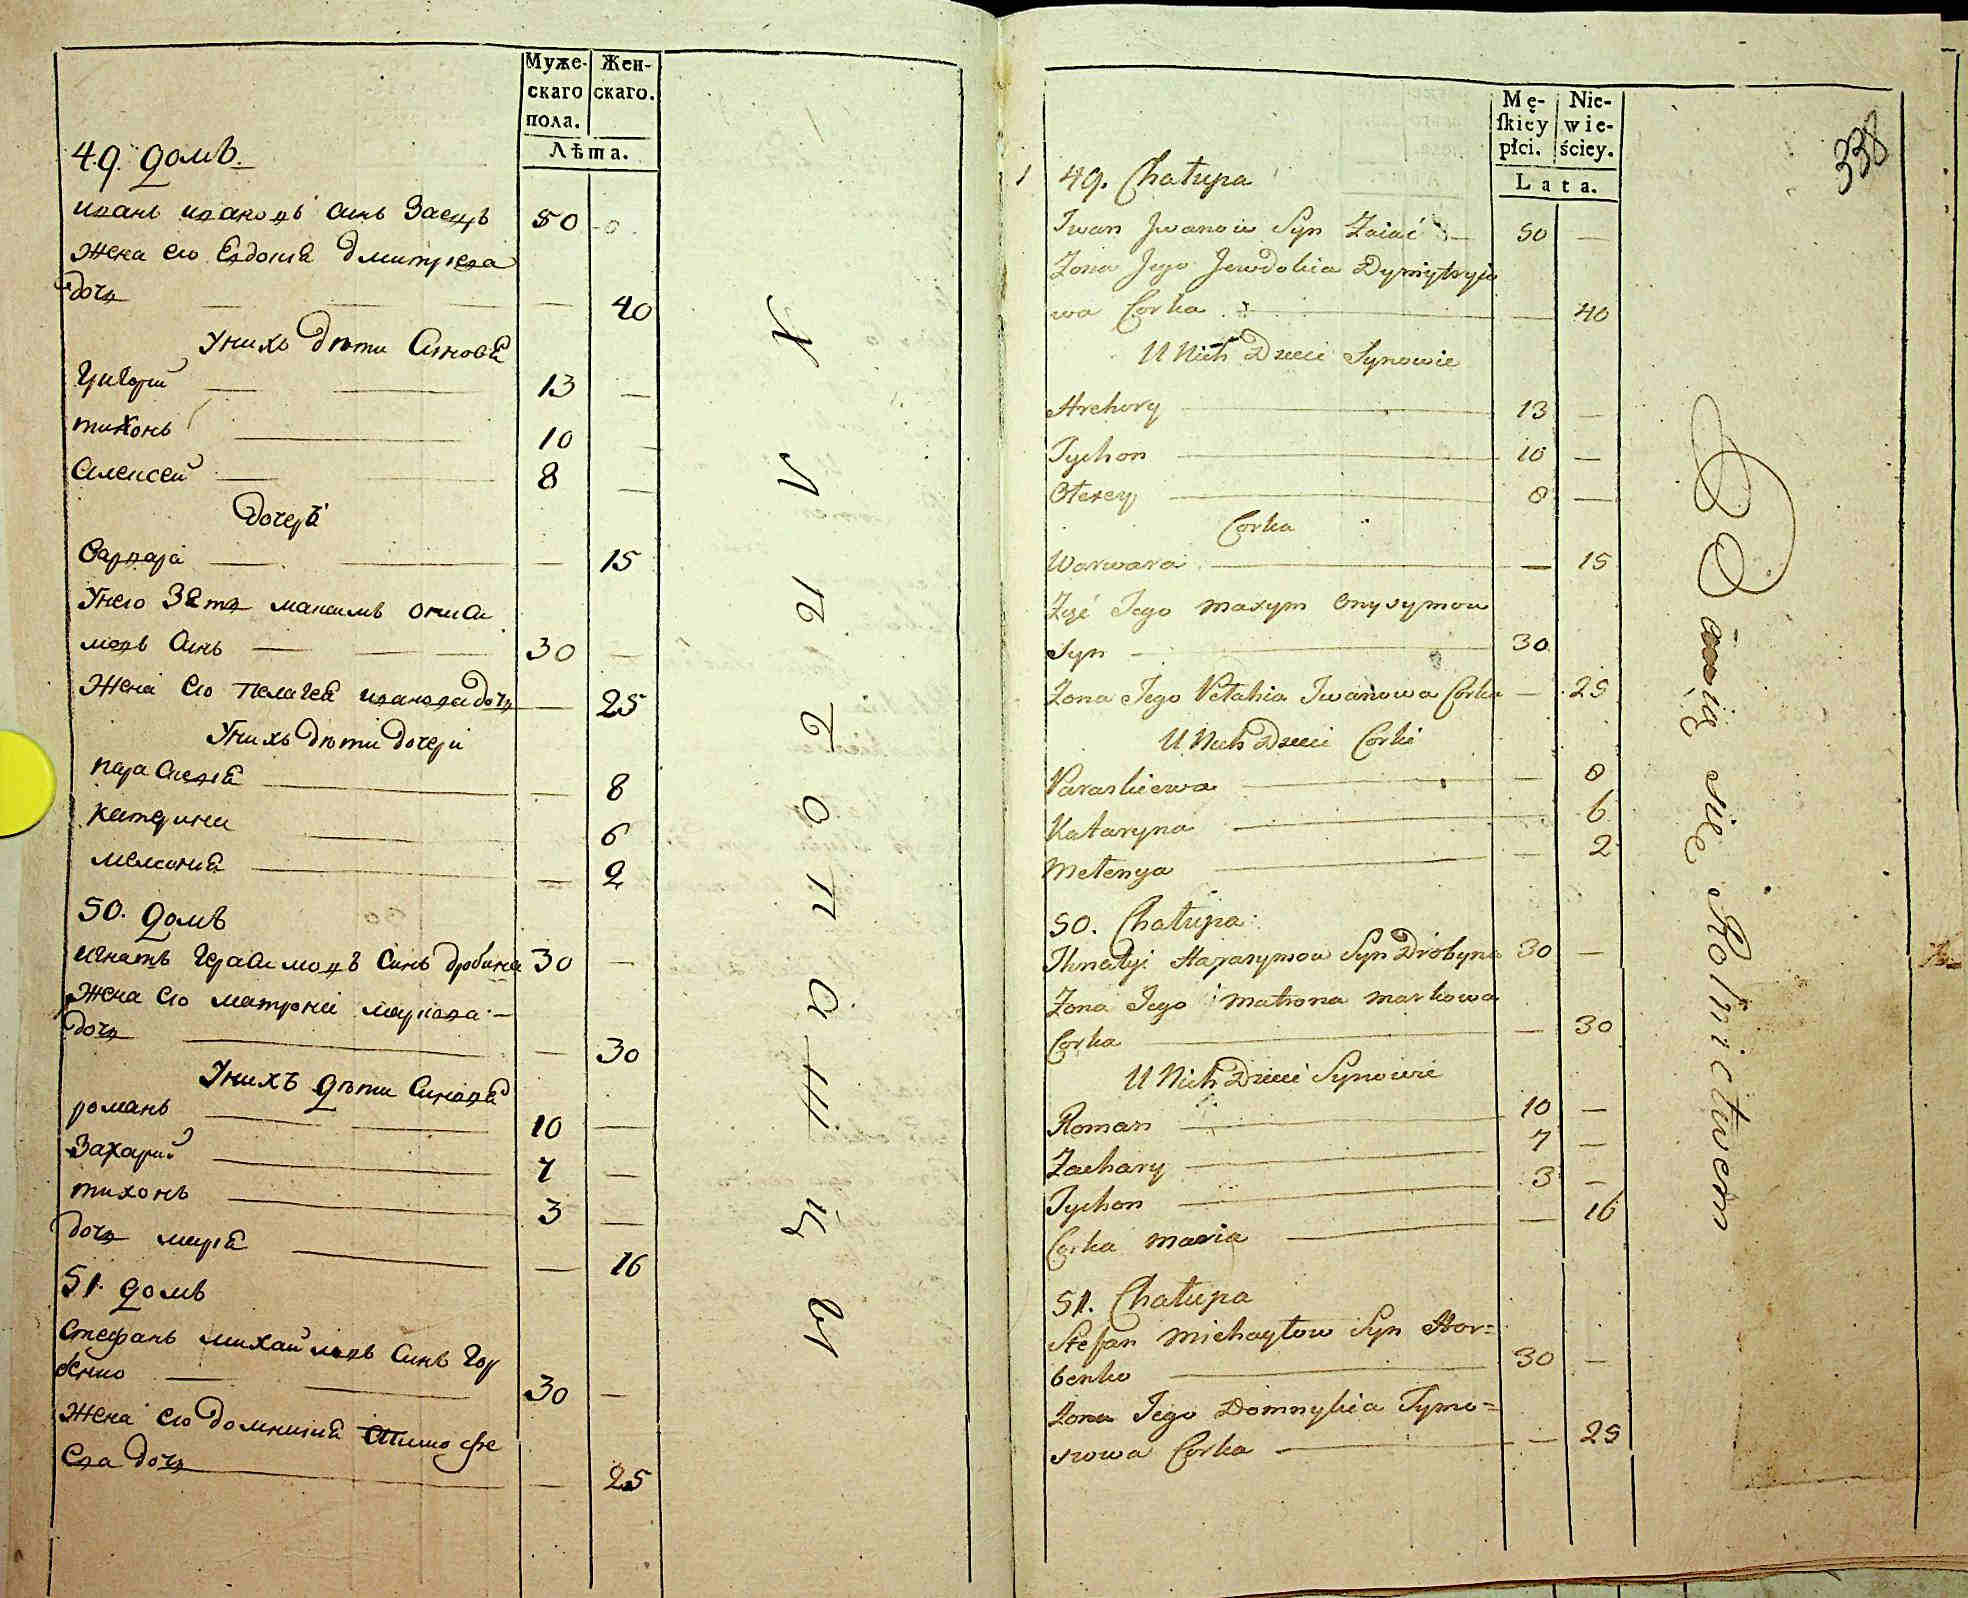 Муже-
скаго
пола.
Жен-
скаго.
Лѣта.
49. домъ.
иванъ ивановъ синъ Заецъ 50
Жена его Евдокия Дмитриева
дочь 40
У нихъ дѣти Синовя
Григорий 13
тихонъ 10
Алексей 8
Дочеря
Варвара 15
У него Зять максимъ ониси
мовъ Синъ 30
Жена его пелагея иванова дочь 25
У нихъ дѣти дочери
параскевия 8
катерина 6
мелания 2
50. домъ
игнатъ герасимовъ Синъ дробина 30
Жена его матрона маркова
дочь 30
У нихъ дѣти Синовя
романъ 10
Захарий 7
тихонъ 3
дочь мария 16
51. домъ
Стефанъ михайловъ Синъ Гор
бенко 30
Жена его домникия Тимофе
ева дочь 25
Mę-
skiey
płci.
Nie-
wie-
ściey.
Lata.
338
49. Chałupa
Iwan Jwanow Syn Zaiać 50
Zona Jego Jewdokia Dymytryjo
wa Corka 40
U Nich Dzieci Synowie
Hrehory 13
Tychon 10
Ołexey 8
Corka
Warwara 15
Zęć Jego Maxym Onysymow
Syn 30
Zona Jego Pełahia Jwanowa Corka 25
U Nich Dzieci Corki
Paraskiewa 8
Kataryna 6
Mełenya 2
50. Chałupa
Ihnatyi Harasymow Syn Drobyna 30
Zona Jego Matrona Markowa
Corka 30
U Nich Dzieci Synowie
Roman 10
Zachary 7
Tychon 3
Corka Maria 16
51. Chałupa
Stefan Michayłow Syn Hor=
benko 30
Zona Jego Domnykia Tymo=
szowa Corka 25
się Rolnictwem